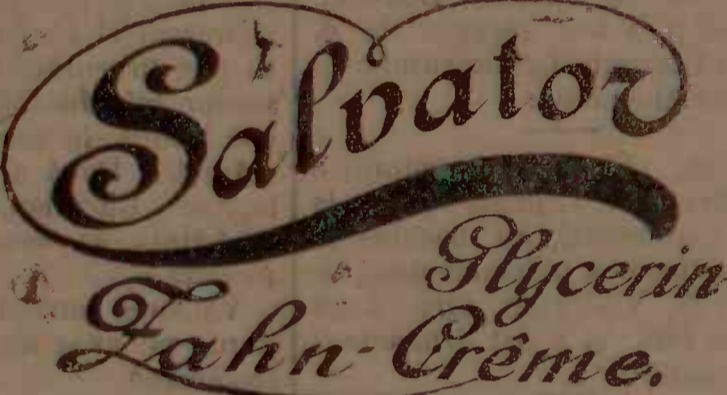 Salvator
Glycerin
Zahn-Crême.